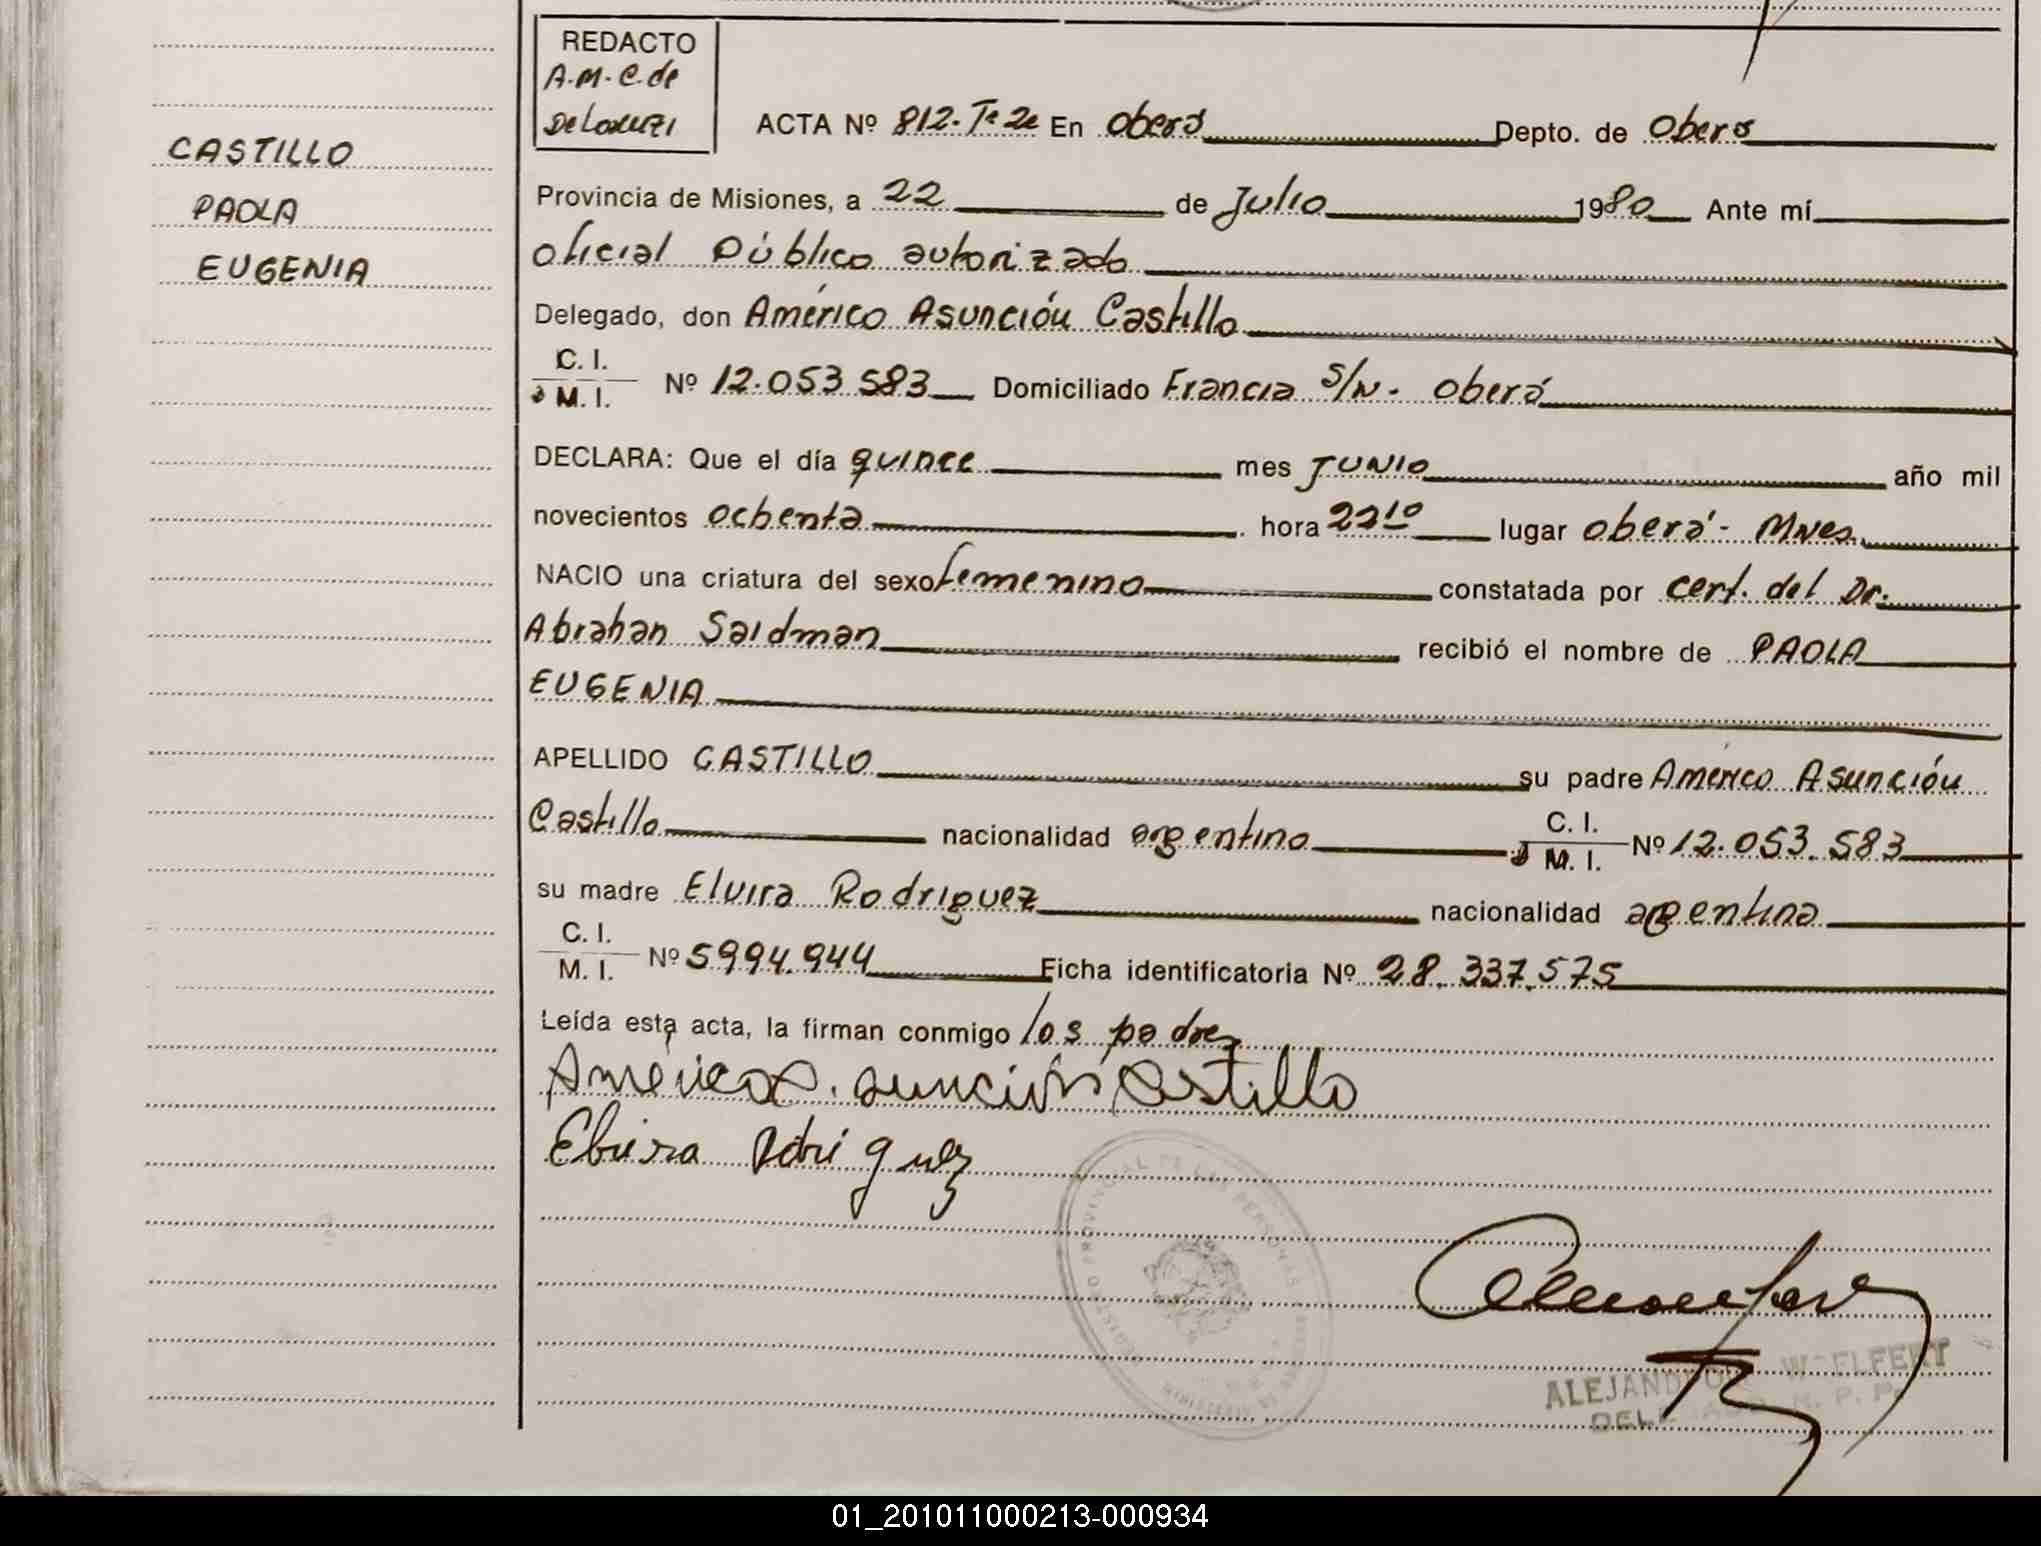 REDACTO
A.M.C. de
De Lorenzi
CASTILLO
PAOLA
EUGENIA
ACTA Nº 812. Tº 2º En Oberá Depto. de Oberá
Provincia de Misiones, a 22 de Julio 1980 Ante mí
Oficial Público autorizado
Delegado, don Américo Asunción Castillo
C. I.
M. I. Nº 12.053.583 Domiciliado Francia S/N - Oberá
DECLARA: Que el día quince mes JUNIO año mil
novecientos ochenta hora 22 10 lugar Oberá - Mnes.
NACIO una criatura del sexo femenino constatada por cert. del Dr.
Abrahan Saidman recibió el nombre de PAOLA
EUGENIA
APELLIDO CASTILLO su padre Américo Asunción
Castillo nacionalidad argentino C. I. M. I. Nº 12.053.583
su madre Elvira Rodriguez nacionalidad argentina
C. I.
M. I. Nº 5994.944 Ficha identificatoria Nº 28.337.575
Leída esta acta, la firman conmigo los padres
Américo Asunción Castillo
REGISTRO PROVINCIAL DE LAS PERSONAS
ALEJANDRO WOELFERT
01_201011000213-000934